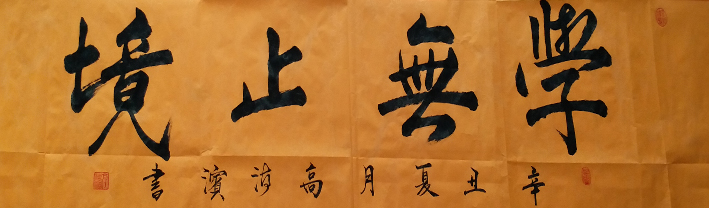 學無止境
辛丑夏月高海濱書